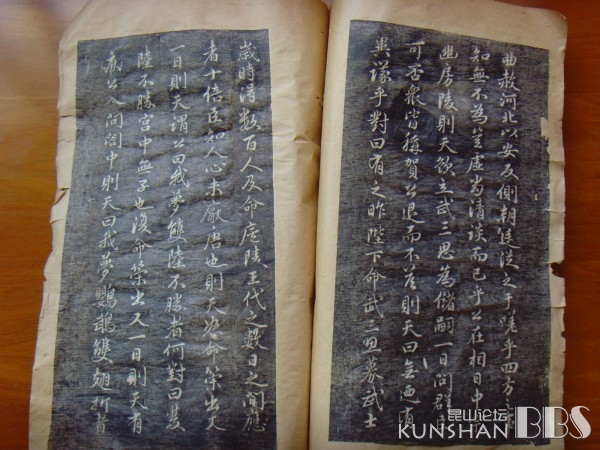 曲赦河北以安反側朝廷從之于嗟乎四方
知無不為豈虛尚清談而已乎公在相日中
幽房陵則天欲立武三思為儲嗣一日問群
可否衆皆稱賀公退而不荅則天曰無迺有
異議乎對曰有之昨陛下命武三思募武士
歲時得数百人及命廬陵王代之數日之間應
者十倍臣知人心未厭唐也則天怒命策出又
一日則天謂公曰我夢雙陸不勝者何對曰雙
陸不勝宮中無子也復命策出又一日則天有
疾公入問閤中則天曰我夢鸚鵡雙翅折者
昆山论坛
KUNSHAN BBS